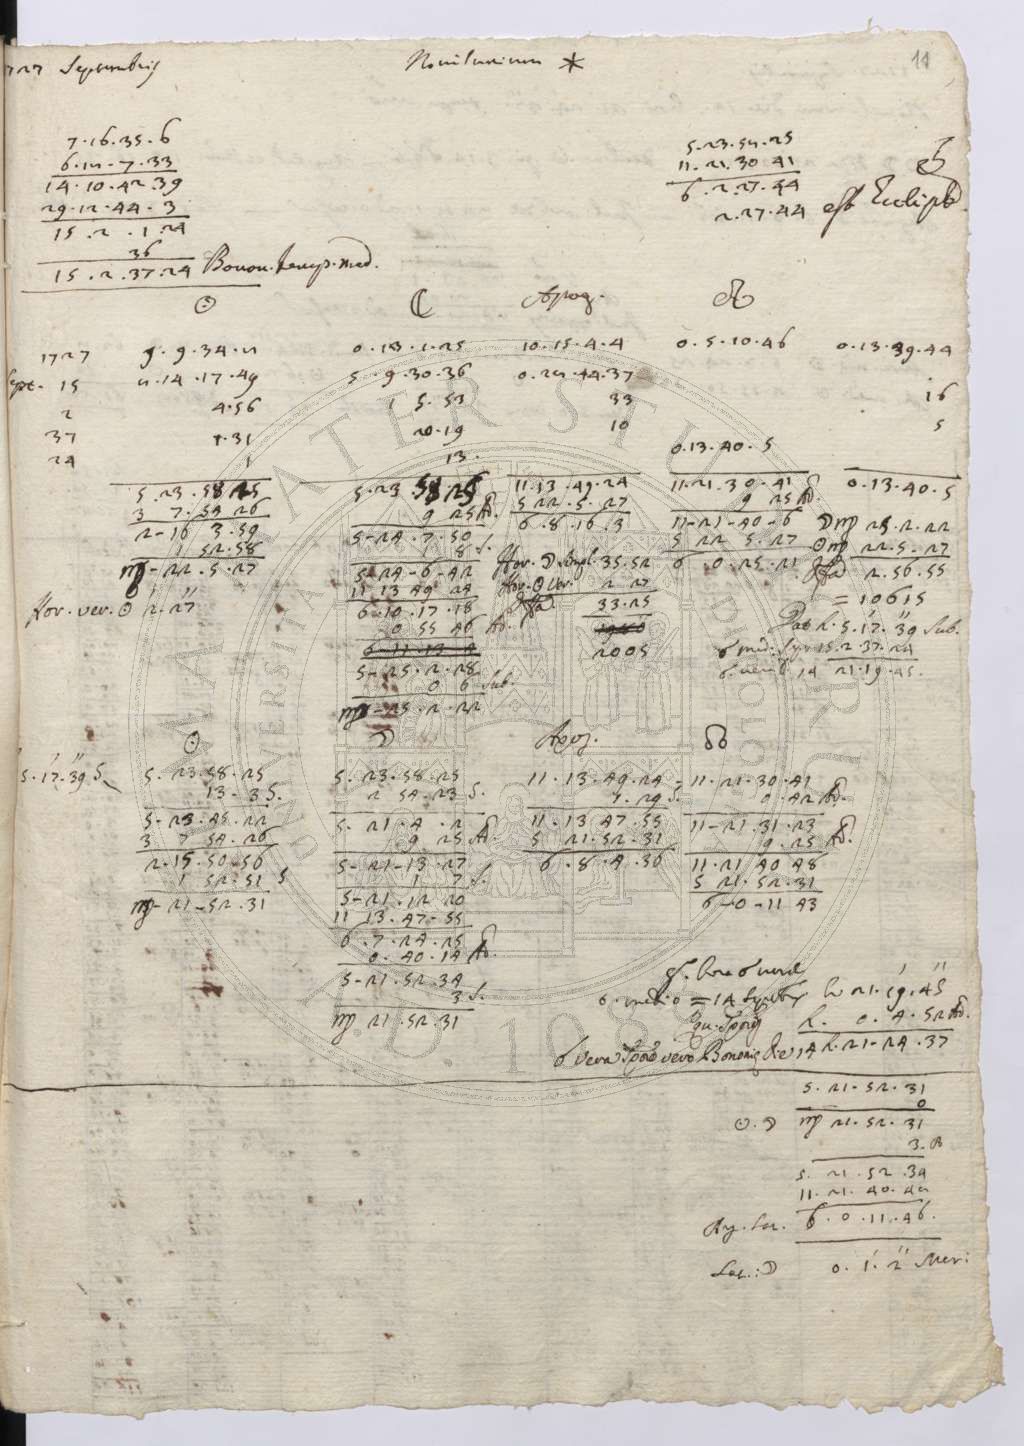 1727 Septembris
Novilunium *
11
7.16.35.6
6.12.7.33
14.10.42.39
29.12.44.3
15.2.1.24
36
15.2.37.24 Bonon. temp. med.
5.23.54.25
11.21.30.41
6.2.27.44
2.27.44 est Eclips.
☉ ☾ Apog. ☊
1727 9.9.34.2 0.13.1.25 10.15.4.4 0.5.10.46 0.13.39.44
Sept. 15 2.14.17.49 5.9.30.36 0.28.44.37 16
2 4.56 1 5.53 33 5
37 1.31 20.19 10
24 1 13. 0.13.40.5
5.23.58.25 5.23.58.25 11.13.49.24 11.21.30.41 0.13.40.5
3 7.54 26 9 25 Ad. 5 22.5.27 9 25 Ad.
2-16 3.59 5-24.7.50 6.8.16.3 11-21-40-6 ☽ ♍ 25.2.22
1 52.58 1 8 S. 5 22 5.27 ☉ ♍ 22.5.27
♍-22.5.27 5-24-6-42 Hor. ☽ simpl. 35.52 6 0.25.21 2.56.55
11 13 49 24 Hor. ☉ ver. 2 27 = 10615
Hor. ver. ☉ 2.27 6.10.17.18 33.25
0 55 46 Ad. 2005 Dat h. 5.17.39 Sub.
5-25.2.28 15.2.37.24
0 6 Sub. 14 21.19.45.
♍-25.2.22
☉ ☽ Apog. ☊
5.17.39 S.
5.23.58.25 5.23.58.25 11.13.49.24 11.21.30.41
13-3 S. 2 54.23 S. 1.29 S. 0.42 Ad.
5-23.45.22 5.21.4.2 11.13 47.55 11-21.31.23
3 7 54.26 9 25 Ad. 5 21.52.31 9.25 Ad.
2.15.50-56 5-21-13.27 6.8.4.36 11.21 40 48
1 52.51 S 1 7 S. 5 21.52.31
♍-21-52.31 5-21.12 20 6-0-11 43
11 13.47-55
6.7.24.25
0.40.14 Ad.
5-21.52.34
3 S.
♍ 21.52.31
= 14 Septembr. h 21.19.45
h. 0.4.52 Ad.
☌ vera vero Bononiae die 14 h. 21-24.37
5.21.52.31
0
☉.☽ ♍ 21.52.31
3.
5.21.52.34
11.21.40.42
Arg. Lat. 6.0.11.46.
Lat. ☽ 0.1.2 Mer:
ALMA MATER STUDIORUM UNIVERSITÀ DI BOLOGNA A.D. 1088